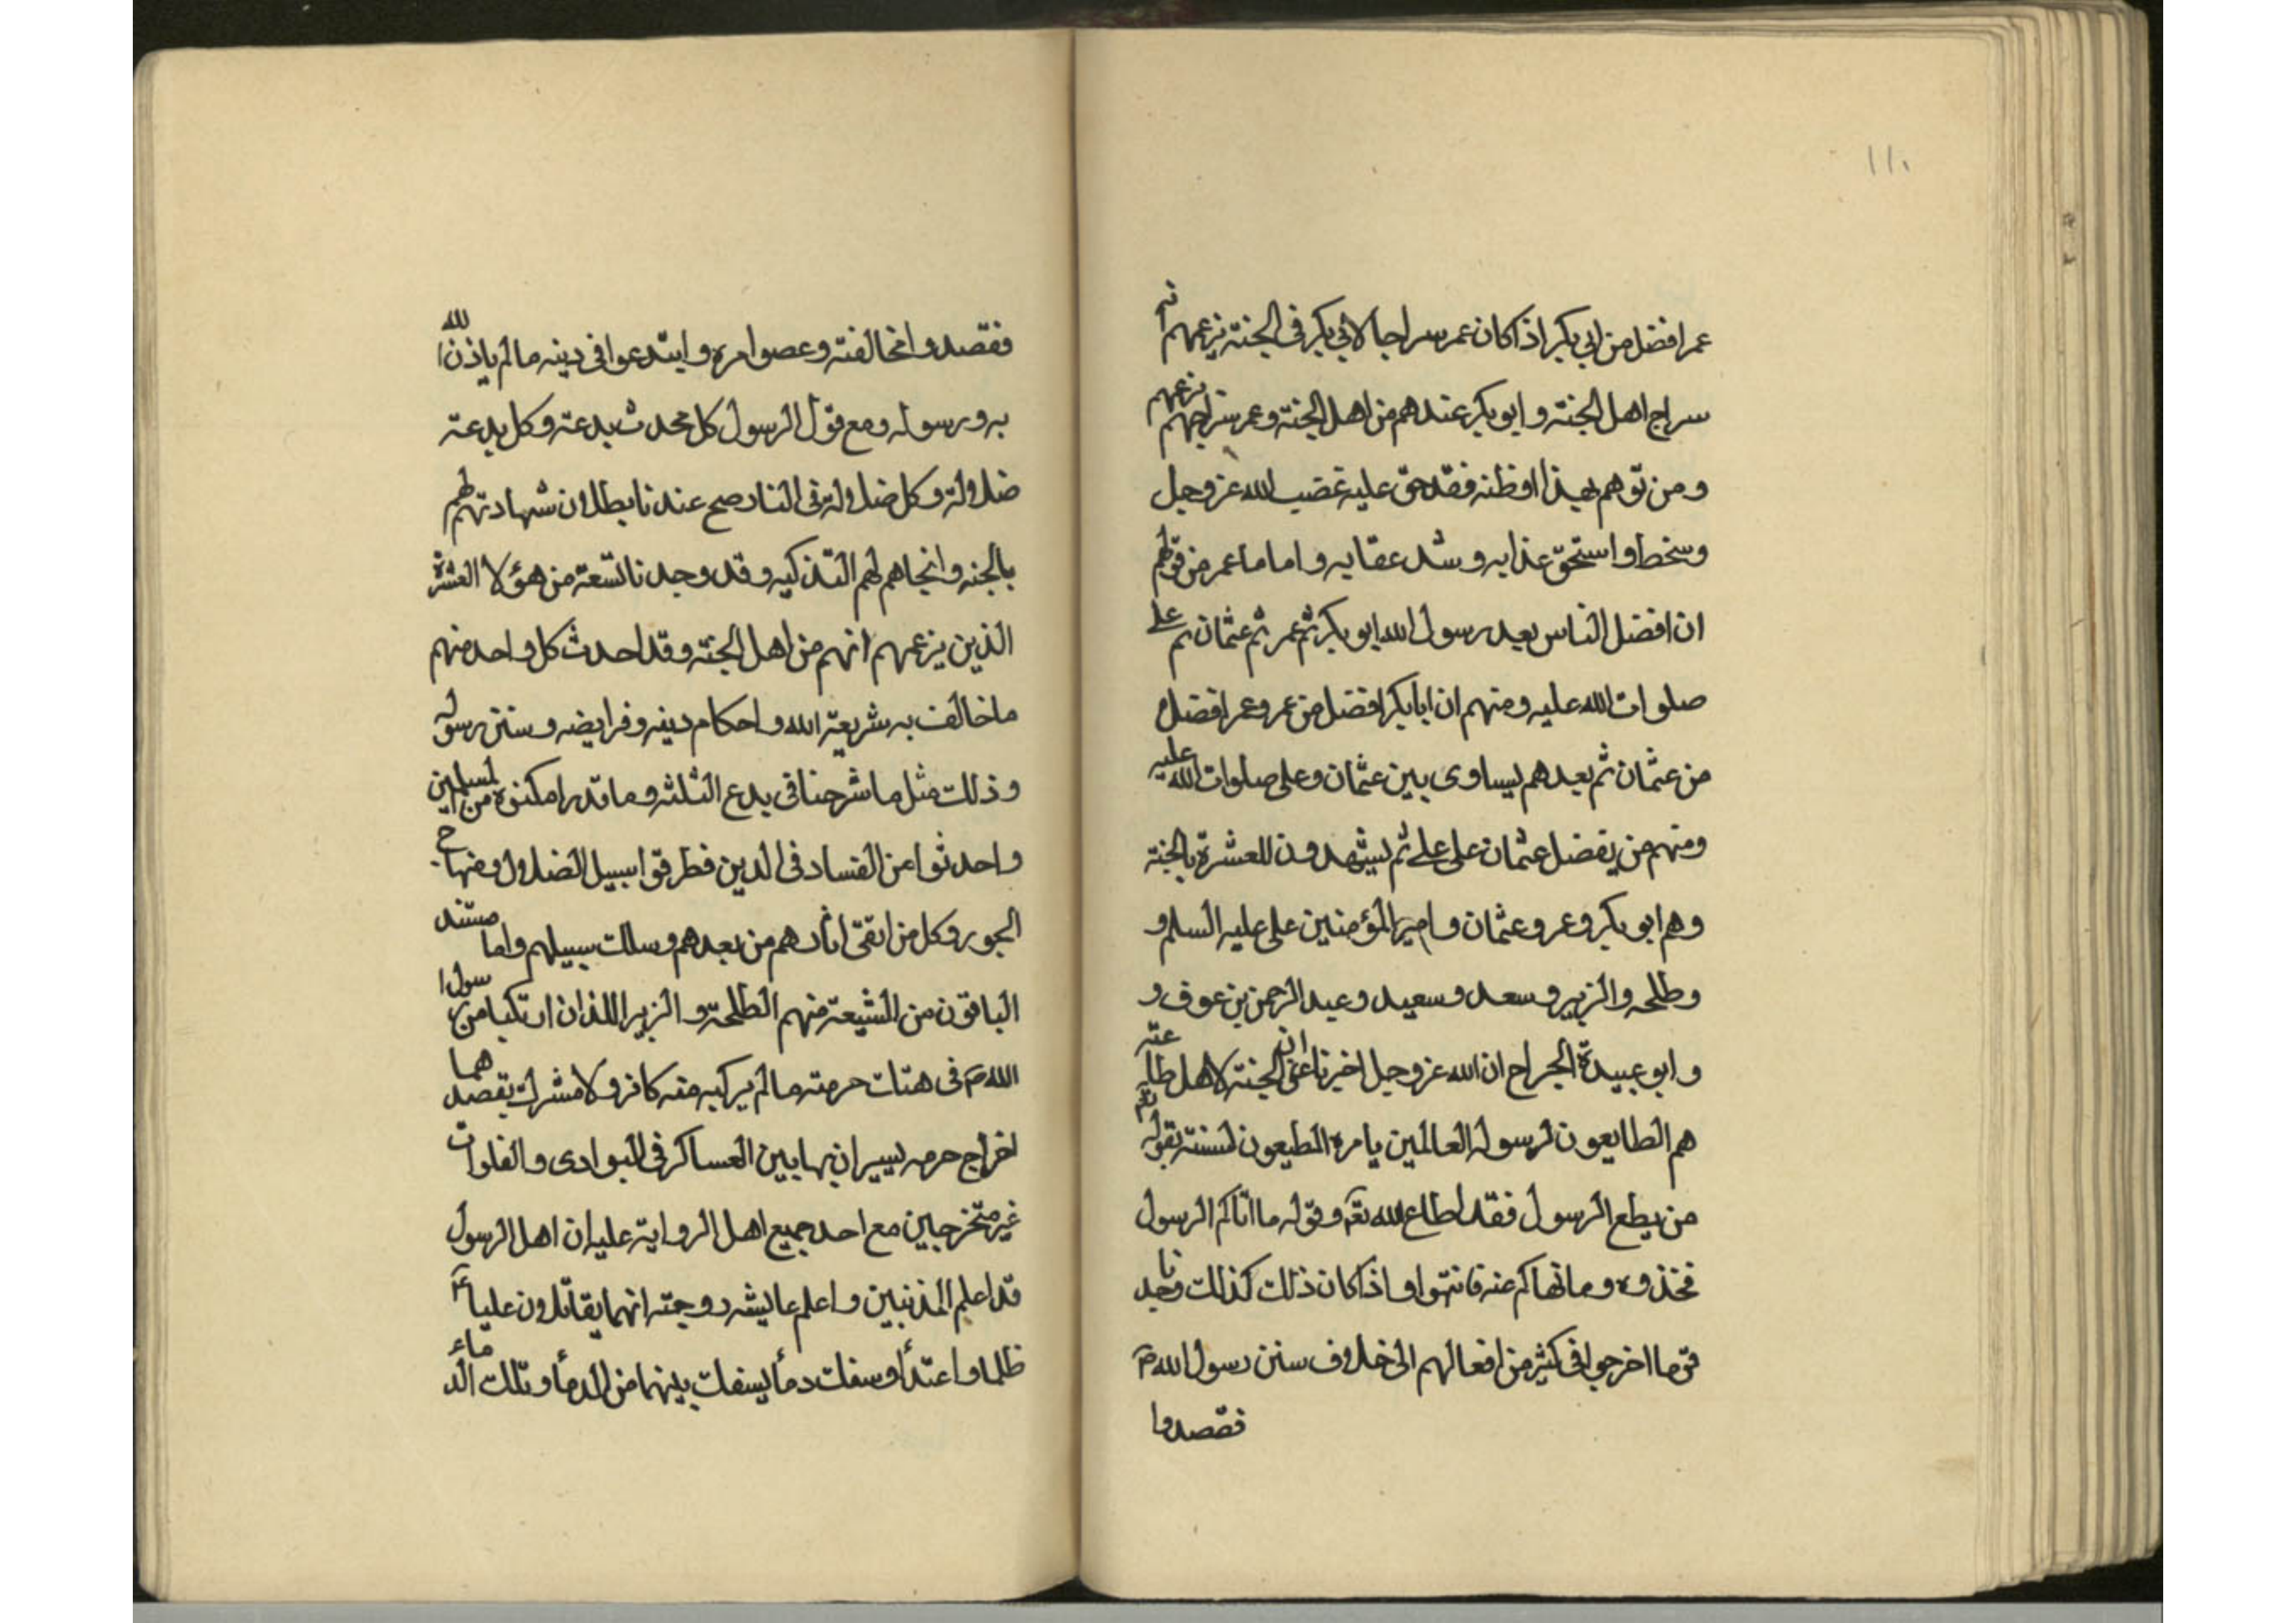 ١١٠
عمر افضل من ابي بكر اذا كان عمر سراجا لابي بكر في الجنة بزعمهم انه
سراج اهل الجنته و ابو بكر عندهم من اهل الجنته و عمر سراجهم بزعمهم
و من توهم بهذا او ظنه فقد حق عليه غضب الله عز و جل
و سخط و استحق عذابه و شد عقابه و اما ما عمر من قولهم
ان افضل الناس بعد رسول الله ابو بكر ثم عمر ثم عثمان ثم علي
صلوات الله عليه و منهم ان ابابكر افضل من عمر و عمر افضل
من عثمان ثم بعدهم يساوى بين عثمان و على صلوات الله عليه
و منهم من يفضل عثمان على علي ثم يشهدون للعشرة بالجنته
و هم ابو بكر و عمر و عثمان و امير المؤمنين على عليه السلم و
و طلحه و الزبير و سعد و سعيد و عبد الرحمن بن عوف و
و ابو عبيدة الجراح ان الله عز و جل اخبرنا عن ان الجنته لاهل طاعته
هم الطايعون لرسوله العالمين بامره المطيعون لسنته بقوله تعم
من يطع الرسول فقد اطاع الله تعم و قوله ما اتاكم الرسول
فخذوه و ما نهاكم عنه فانتهوا و اذا كان ذلك كذلك وجدنا
قوما اخرجوا في كثير من افعالهم الى خلاف سنن رسول الله ص
فقصدوا
فقصدوا مخالفته و عصوا امره و ابتدعوا في دينه ما لم ياذن الله
به و رسوله و مع قول الرسول كل محدث بدعته و كل بدعته
ضلالة و كل ضلالة في النار صح عندنا بطلان شهادتهم لهم
بالجنه و ايجابهم لهم التذكيه و قد وجدنا تسعة من هؤلا العشرة
الذين بزعمهم انهم من اهل الجنته و قد احدث كل واحد منهم
ما خالف به شريعة الله و احكام دينه و فرايضه و سنن رسوله
و ذلك مثل ما شرحنا في بدع الثلثه و ما قدرا مكنوه من المسلمين
و احدثوا من الفساد في الدين فطرقوا سبيل الضلال و منهاج
الجور و كل من اتقى اثارهم من بعدهم و سلك سبيلهم و اما مستند
الباقون من الشيعة منهم الطلحة و الزبير اللذان ارتكبا من رسول ا
الله ص في هتك حرمته ما لم يركبه منه كافر و لا مشرك بقصدهما
اخراج حرمه يسيران بها بين العساكر في البوادى و الفلوات
غير متخرجين مع احد جميع اهل الرواية عليه ان اهل الرسول
قد اعلم المذنبين و اعلم عايشه زوجته انهما يقاتلون عليا ع
ظلما و اعتدأ و سفك دمأ يسفك بينهما من الدمأ و تلك الدماء